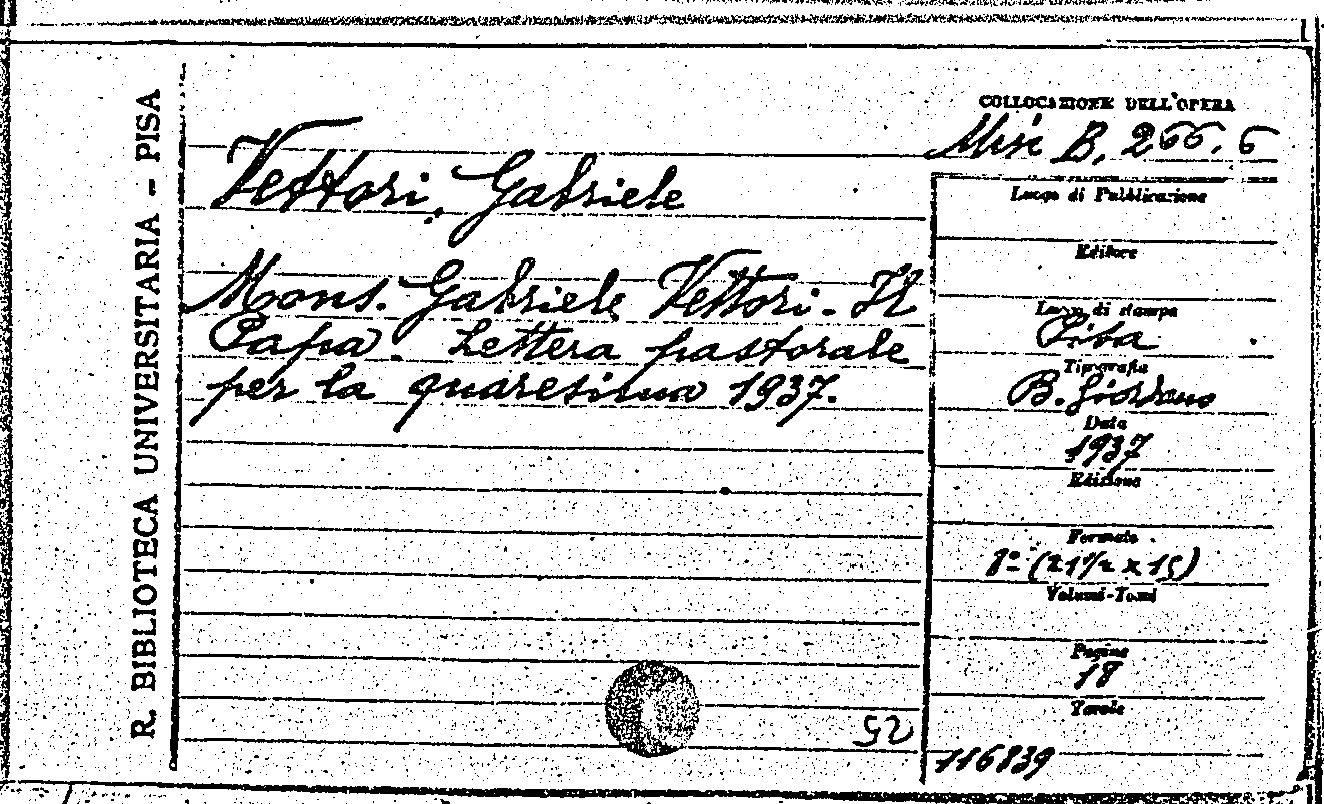 R. BIBLIOTECA UNIVERSITARIA – PISA
COLLOCAZIONE DELL'OPERA
Misc B. 266. 6
Vettori, Gabriele
Mons. Gabriele Vettori. Il
Papa. Lettera pastorale
per la quaresima 1937.
Luogo di Pubblicazione
Editore
Luogo di stampa
Pisa
Tipografia
B. Giordano
Data
1937
Edizione
Formato
8º (21½ x 15)
Volumi-Tomi
Pagine
18
Tavole
52
116839